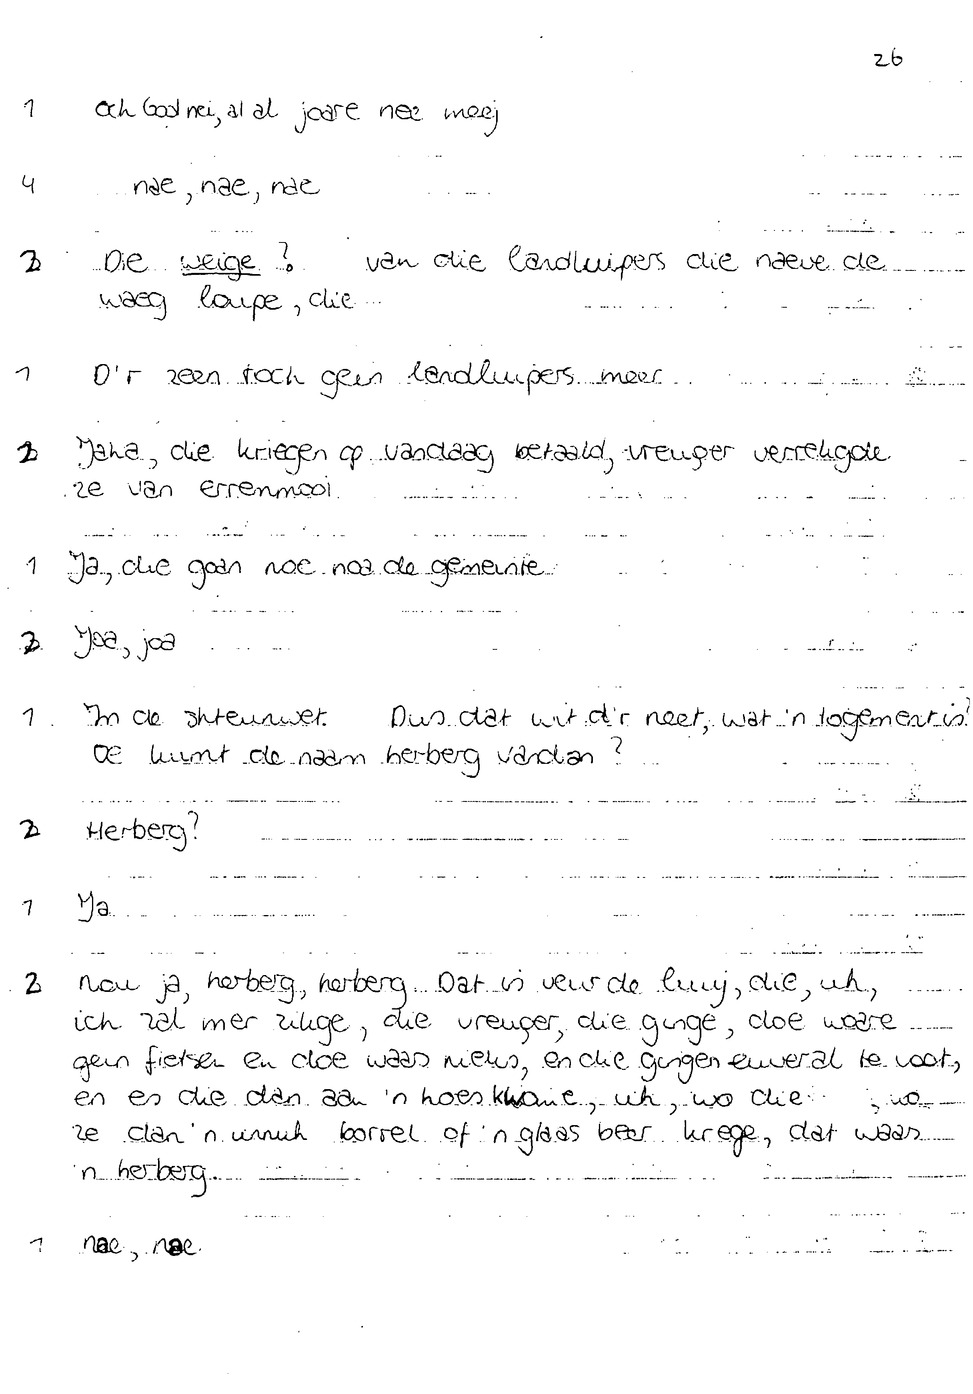 26
1 Och God nei, al al joare nee meej
4 nae, nae, nae
2 Die weige? van die landluipers die naeve de
waeg loupe, die ...
1 D'r zeen toch gein landluipers meer
2 Jaha, die kriegen op vandaag betaald, vreuger verrekgde
ze van errenmooi
1 Ja, die goan noe noa de gemeinte
2 Joa, joa
1 In de shteunwet. Dus dat wit d'r neet, wat 'n logement is?
OE kumt de naam herberg vandan?
2 Herberg?
1 Ja
2 Nou ja, herberg, herberg. Dat is veur de luuj, die, uh,
ich zal mer zikge, die vreuger, die ginge, doe woare
gein fietsen en doe waas nieks, en die gingen euveral te voot,
en es die dan aan 'n hoes kwame, uh, wo die , wo
ze dan 'n unnuh borrel of 'n glaas beer krege, dat waas
'n herberg.
1 nae, nae